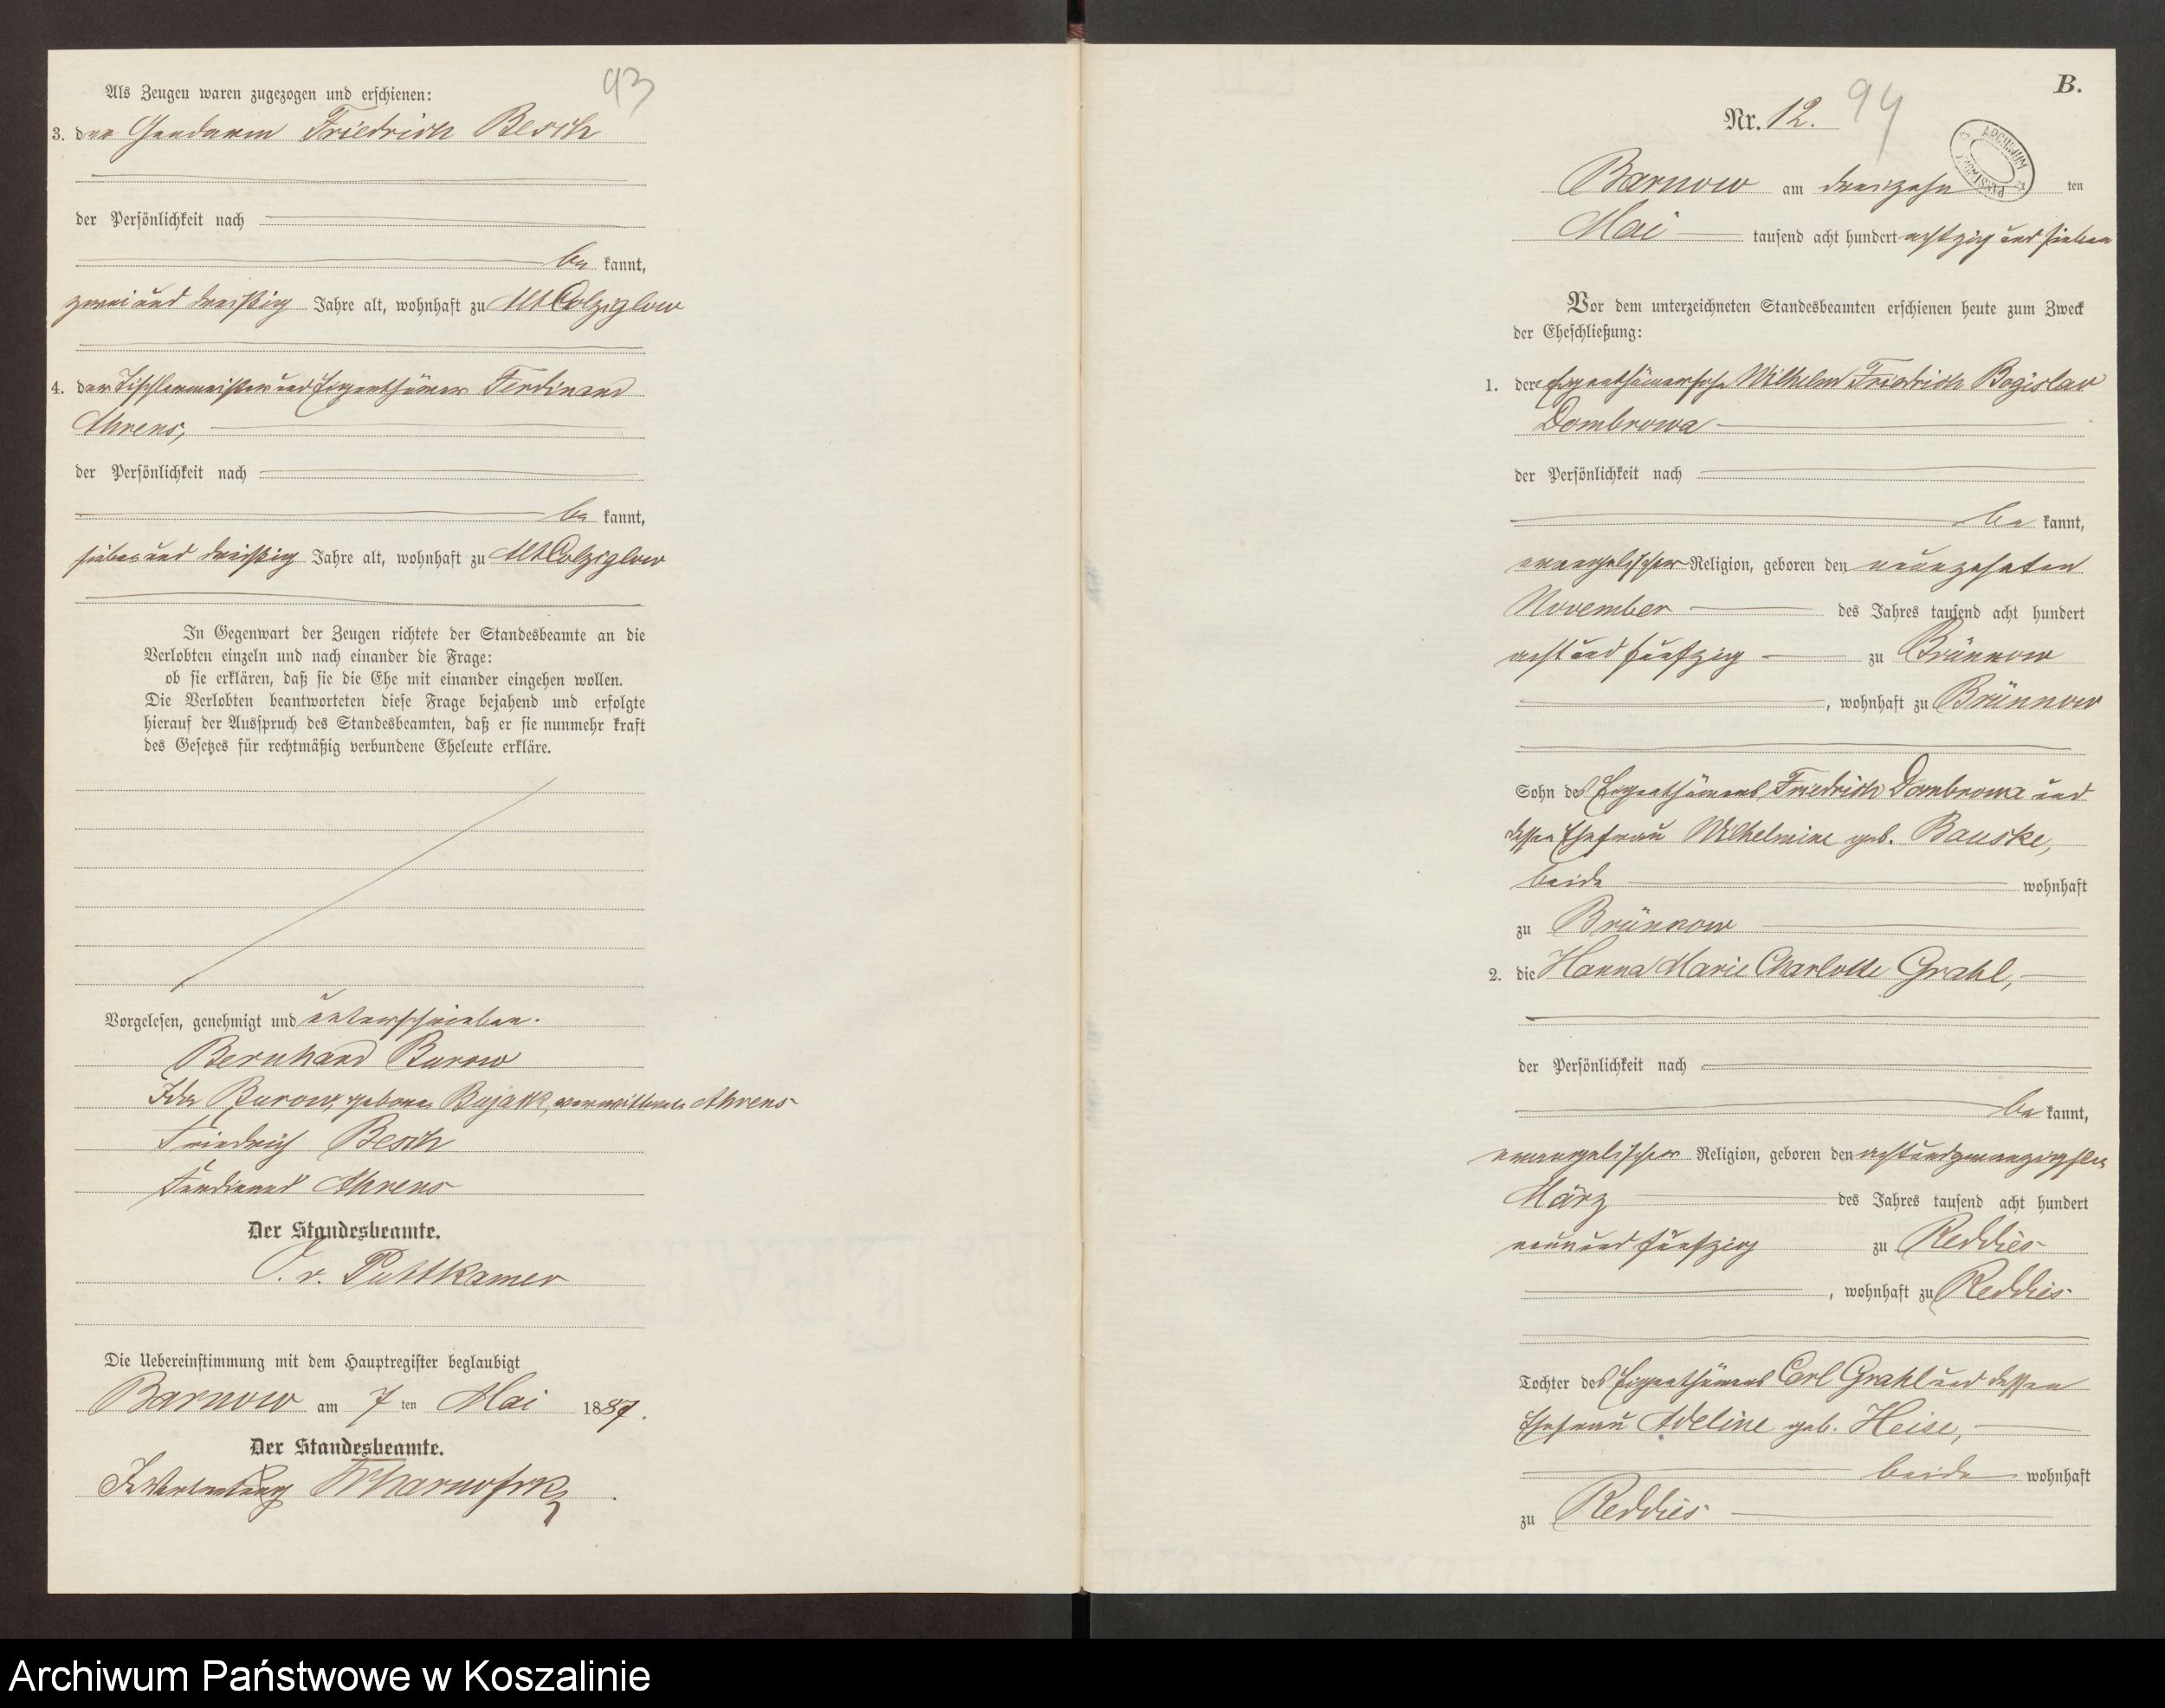 93
Als Zeugen waren zugezogen und erschienen:
3. der Gendarm Friedrich Besch
der Persönlichkeit nach
be kannt,
zwei und dreißig Jahre alt, wohnhaft zu Alt Colziglow
4. der Tischlermeister und Eigenthümer Ferdinand
Ahrens,
der Persönlichkeit nach
be kannt,
sieben und dreißig Jahre alt, wohnhaft zu Alt Colziglow
In Gegenwart der Zeugen richtete der Standesbeamte an die
Verlobten einzeln und nach einander die Frage:
ob sie erklären, daß sie die Ehe mit einander eingehen wollen.
Die Verlobten beantworteten diese Frage bejahend und erfolgte
hierauf der Ausspruch des Standesbeamten, daß er sie nunmehr kraft
des Gesetzes für rechtmäßig verbundene Eheleute erkläre.
Vorgelesen, genehmigt und unterschrieben.
Bernhard Burow
Ida Burow, geborne Bujack, verwittwete Ahrens
Friedrich Besch
Ferdinand Ahrens
Der Standesbeamte.
v. Puttkamer
Die Uebereinstimmung mit dem Hauptregister beglaubigt
Barnow am 7 ten Mai 1887.
Der Standesbeamte.
In Vertretung
B.
Nr. 12. 94
ARCHIWUM PAŃSTWOWE
Barnow am dreizehn ten
Mai tausend acht hundert achtzig und sieben
Vor dem unterzeichneten Standesbeamten erschienen heute zum Zweck
der Eheschließung:
1. der Eigenthümersohn Wilhelm Friedrich Bogislav
Dombrowa
der Persönlichkeit nach
be kannt,
evangelischer Religion, geboren den neunzehnten
November des Jahres tausend acht hundert
acht und fünfzig zu Brünnow
, wohnhaft zu Brünnow
Sohn des Eigenthümers Friedrich Dombrowa und
dessen Ehefrau Wilhelmine geb. Bauske,
beide wohnhaft
zu Brünnow
2. die Hanna Marie Charlotte Grahl,
der Persönlichkeit nach
be kannt,
evangelischer Religion, geboren den acht und zwanzigsten
März des Jahres tausend acht hundert
neun und fünfzig zu Reddies
, wohnhaft zu Reddies
Tochter des Eigenthümers Carl Grahl und dessen
Ehefrau Adeline geb. Heise,
beide wohnhaft
zu Reddies
Archiwum Państwowe w Koszalinie